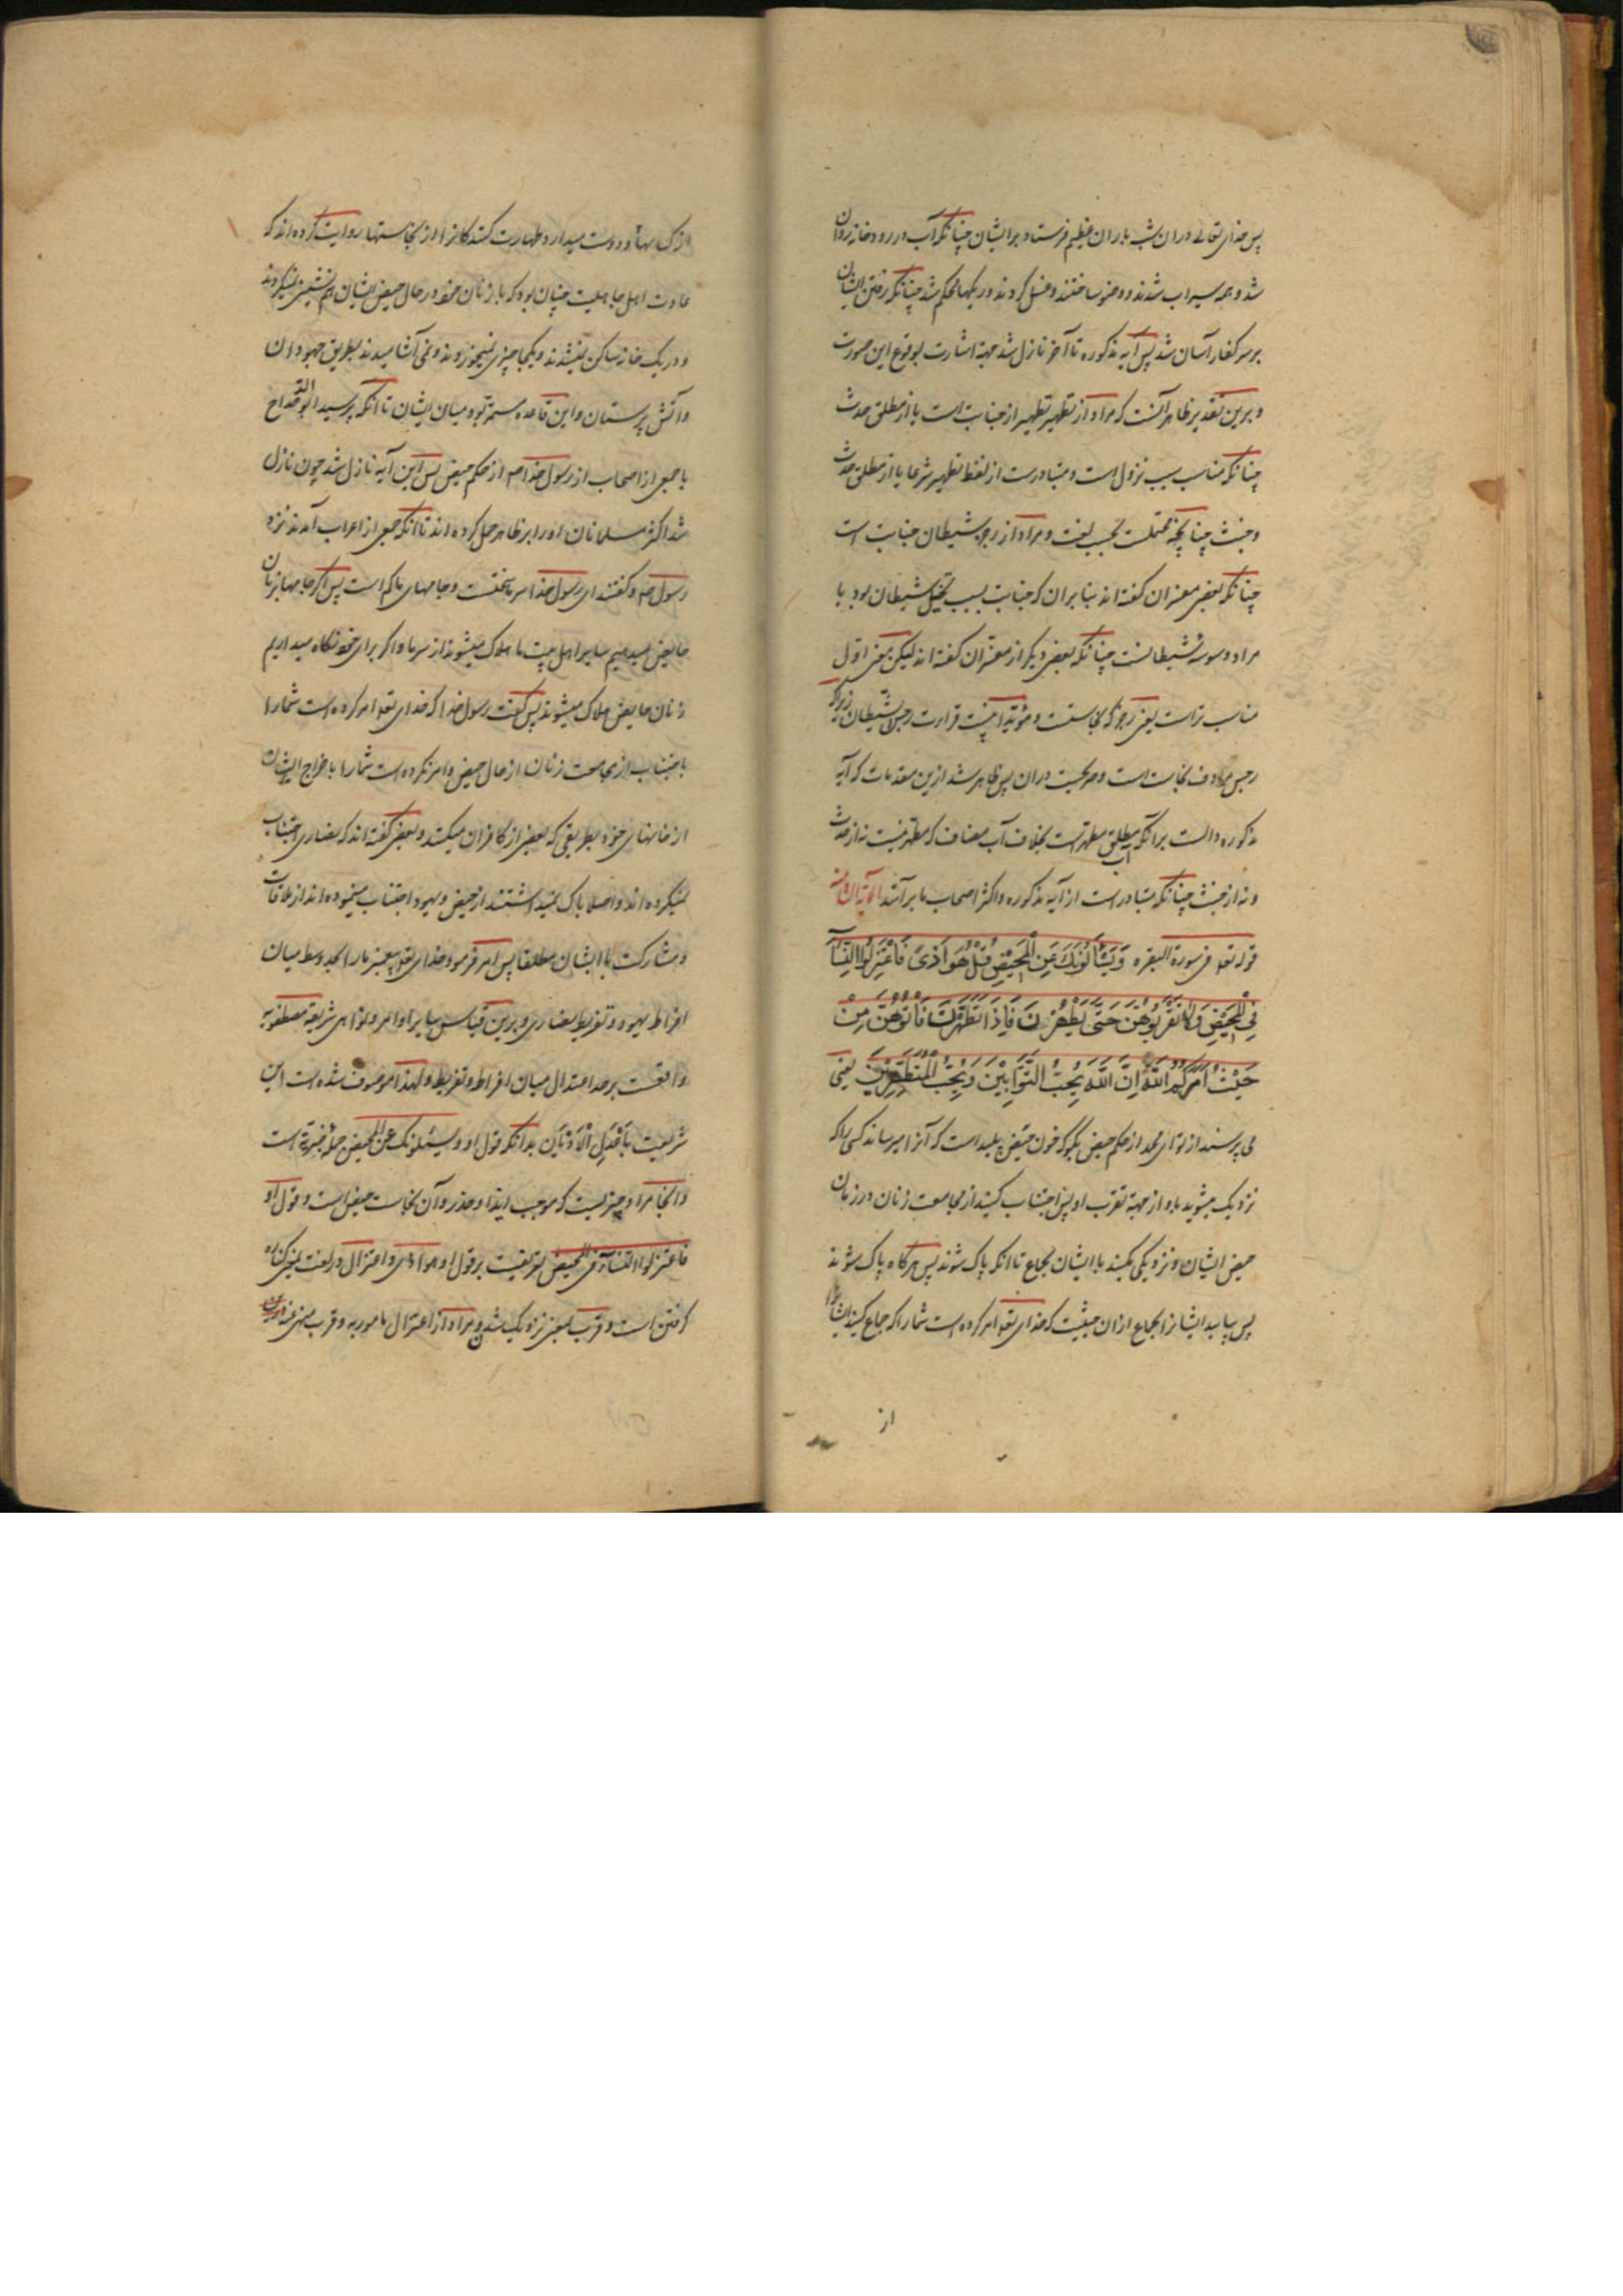 پس خدای تعالی در ان شب باران عظیم فرستاد بر ایشان چنانکه آب در رودخانه روان
شد و همه سیراب شدند و وضو ساختند و غسل کردند و ریکها محکم شد چنانکه رفتن ایشان
بر سر کفار آسان شد پس آیه مذکوره تا آخر نازل شد جهة اشارت بوقوع این صورت
و برین تقدیر ظاهر آنست که مراد از تطهیر تطهیر از جنابت است یا از مطلق حدث
چنانکه مناسب سبب نزول است و متبادرست از لفظ تطهیر شرعا یا از مطلق حدث
و خبث چنانچه محتملست بحسب لغت و مراد از رجز شیطان جنابت است
چنانکه بعضی مفسران کفته اند بنا بران که جنابت بسبب تخییل شیطان بود یا
مراد وسوسه شیطانست چنانکه بعضی دیکر از مفسران کفته اند لیکن معنی اول
مناسب تر است یعنی رجز که نجاستست و مؤید اینست قرارت رجس الشیطان زیرا که
رجس مرادف نجاست است و صریحست دران پس ظاهر شد ازین مقدمات که آیه
مذکوره دالست برانکه آب مطلق مطهرست بخلاف آب مضاف که مطهر نیست نه از حدث
و نه از خبث چنانکه متبادر است از آیه مذکوره و اکثر اصحاب ما بر آنند الآیة الثانیة
قوله تعا فی سورة البقره وَیَسْأَلُونَكَ عَنِ الْمَحِیْضِ قُلْ هُوَ اَذًی فَاعْتَزِلُوا النِّسَآءَ
فِی الْمَحِیْضِ وَلَا تَقْرَبُوهُنَّ حَتَّی یَطْهُرْنَ فَاِذَا تَطَهَّرْنَ فَأْتُوهُنَّ مِنْ
حَیْثُ اَمَرَکُمُ اللَّهُ اِنَّ اللَّهَ یُحِبُّ التَّوَّابِیْنَ وَیُحِبُّ الْمُتَطَهِّرِیْنَ یعنی
می پرسند از تو ای محمد از حکم حیض بکو که خون حیض پلید است که آزار میرساند کسی را که
نزدیک میشود باو از جهة تقرب او پس اجتناب کنید از مجامعت زنان در زمان
حیض ایشان و نزدیکی مکنید با ایشان بجماع تا انکه پاک شوند پس هرکاه پاک شوند
پس بیایید ایشانرا بجماع از ان حیثیت که خدای تعا امر کرده است شما را که جماع کنید ایشانرا
از
از ان و دوست میدارد طهارت کنندکانرا از نجاستها روایت کرده اند که
عادت اهل جاهلیت چنان بود که با زنان خود در حال حیض ایشان هم نشینی نمیکردند
و در یک خانه ساکن نمیشدند و یکجا چیزی نمیخوردند و نمی آشامیدند بطریق جهودان
و آتش پرستان و این قاعده مستمر بود میان ایشان تا انکه پرسید ابو الدحداح
با جمعی از اصحاب از رسول خدا ص از حکم حیض پس این آیه نازل شد چون نازل
شد اکثر مسلمانان او را بر ظاهر حمل کرده اند تا انکه جمعی از اعراب آمدند نزد
رسول ص و کفتند ای رسول خدا سرما سختست و جامهای ما کم است پس اکر جامها بزنان
حایض میدهیم سایر اهل بیت ما هلاک میشوند از سرما و اکر برای خود نکاه میداریم
زنان حایض هلاک میشوند پس کفت رسول خدا که خدای تعا امر کرده است شما را
باجتناب از مجامعت زنان در حال حیض و امر نکرده است شما را باخراج ایشان
از خانهای خود بطریقی که بعضی از کافران میکنند و بعضی کفته اند که نصاری اجتناب
نمیکرده اند و اصلا باک نمیداشتند از حیض و یهود اجتناب مینموده اند از ملاقات
و مشارکت با ایشان مطلقا پس امر فرمود خدای تعا پیغمبر ما را بحد وسط میان
افراط یهود و تفریط نصاری و برین قیاس سایر اوامر و نواهی شریعة مصطفویه
واقعست بر حد اعتدال میان افراط و تفریط و لهذا موصوف شده است این
شریعت باَعْدَلِ الْاَدْیَان بدانکه قول او و یسئلونک عن المحیض جمله خبریه است
و اینجا مراد چیزیست که موجب ایذا و حذر و آن نجاست حیض است و قول او
فاعتزلوا النسآء فی المحیض تفریعست بر قول او هو اذی و اعتزال در لغت بمعنی کناره
کرفتن است و قرب بمعنی نزدیک شدن و مراد از اعتزال مامور به و قرب منهی عنه